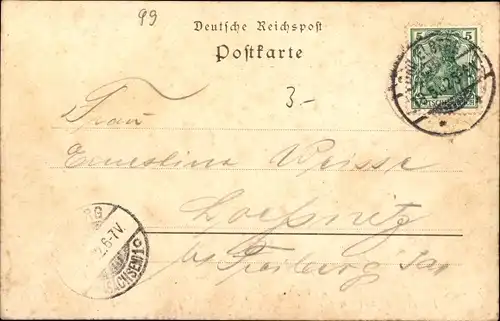 99
Deutsche Reichspost
Postkarte
5 5
3.-
Frau
Ernestina Weisse
Loessnitz
bei Freiberg Sa
RG
2.6-7V.
(SACHSEN)1c